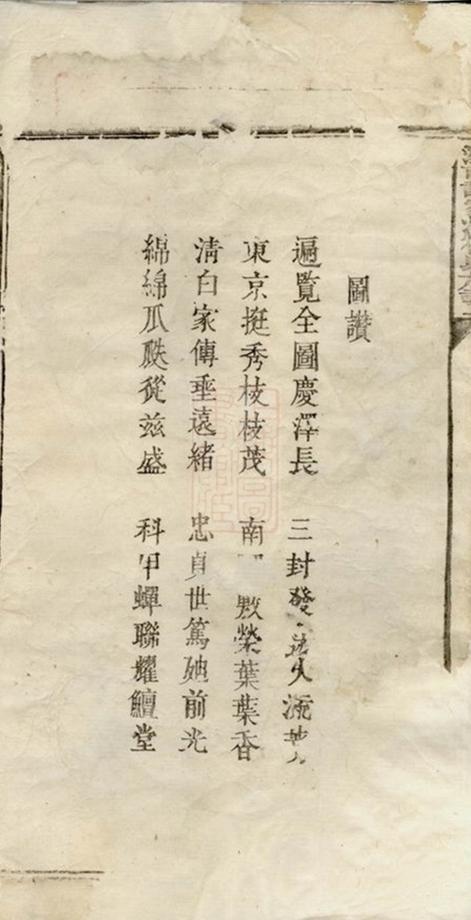 圖讚
遍覽全圖慶澤長 三封發
東京挺秀枝枝茂 南 敷榮葉葉香
淸白家傳垂遠緒 忠貞世篤 前光
綿綿瓜瓞從茲盛 科甲蟬聯耀鱣堂